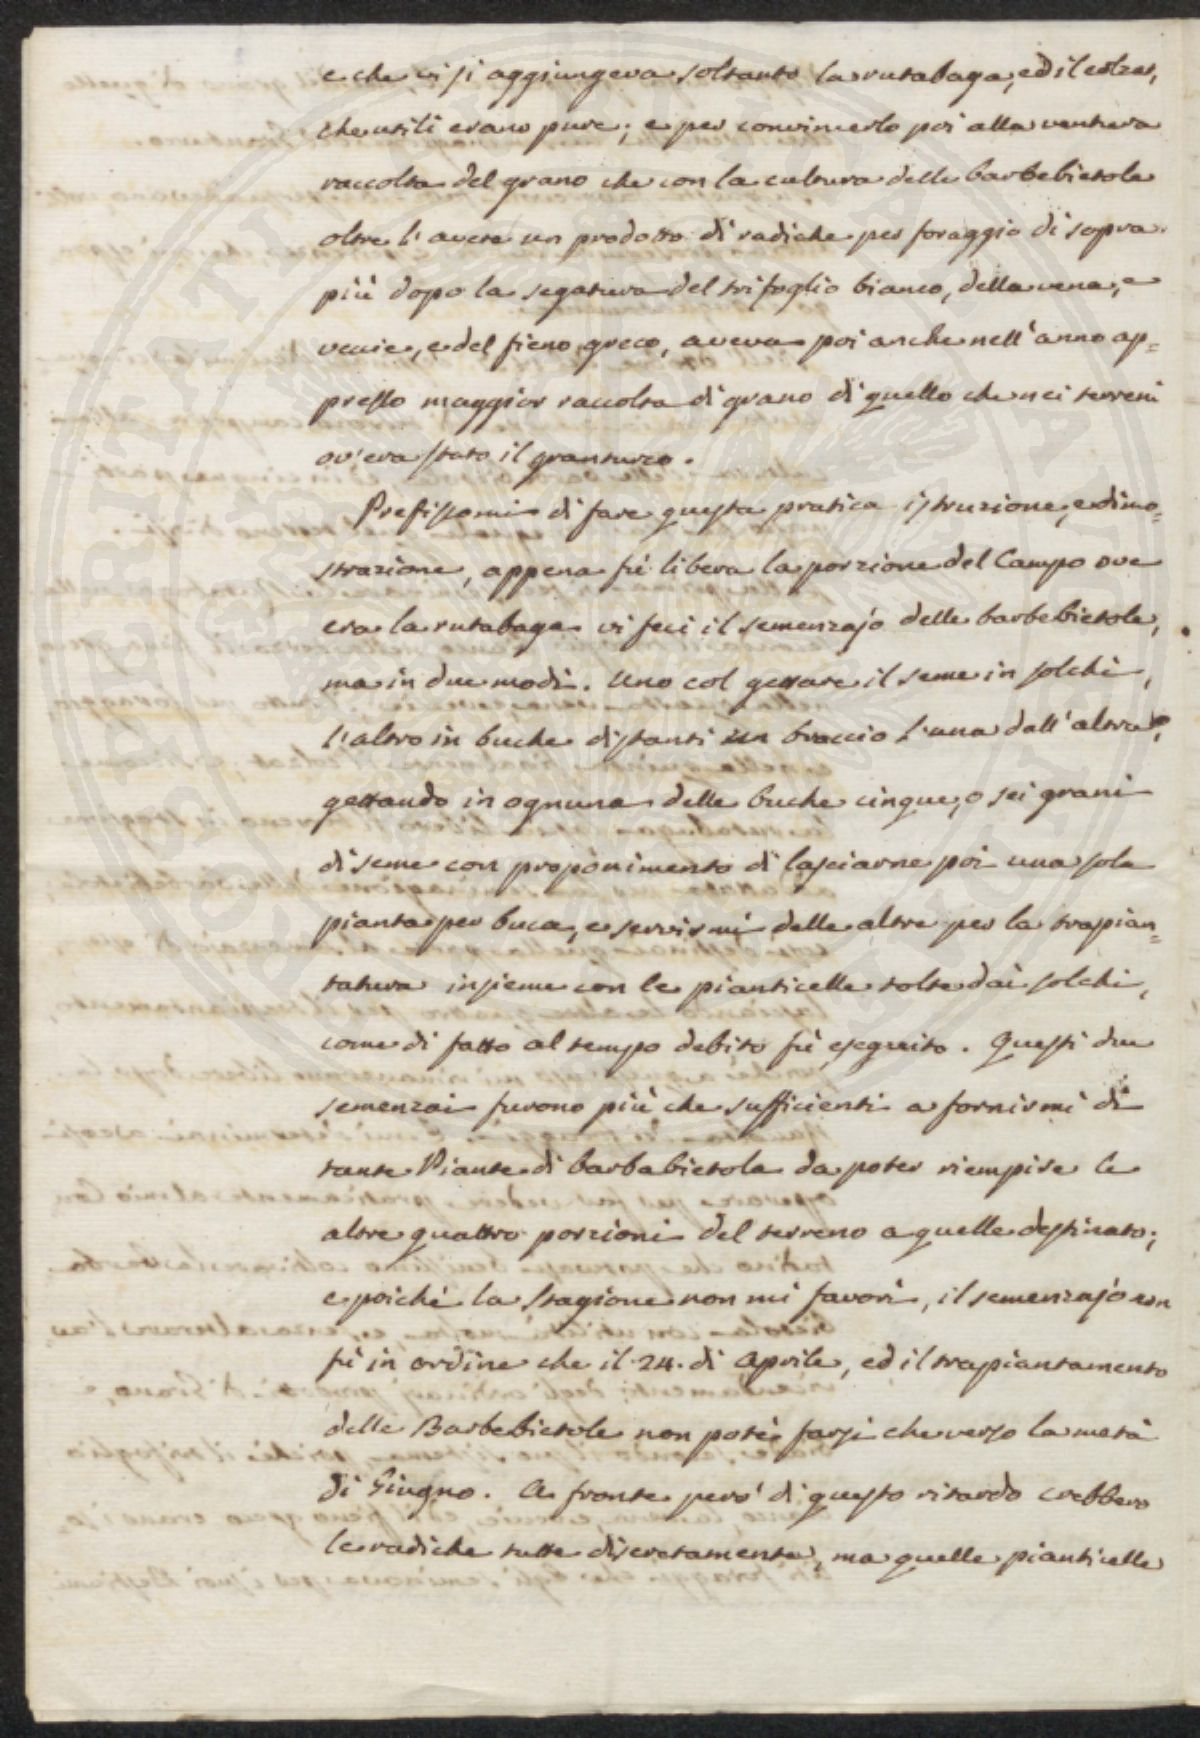 e che vi si aggiungeva soltanto la rutabaga, ed il colzat,
che utili erano pure; e per convincerlo poi alla ventura
raccolta del grano che con la cultura delle barbebietole
oltre l'avere un prodotto di radiche per foraggio di sopra
più dopo la segatura del trifoglio bianco, della vena, e
veccie, e del fieno greco, aveva poi anche nell'anno ap=
presso maggior raccolta di grano di quello che nei terreni
ov'era stato il granturco.
Prefissomi di fare questa pratica istruzione, e dimo=
strazione, appena fù libera la porzione del Campo ove
era la rutabaga vi feci il semenzajo delle barbebietole,
ma in due modi. Uno col gettare il seme in solchi,
l'altro in buche distanti un braccio l'una dall'altra,
gettando in ognuna delle buche cinque, o sei grani
di seme con proponimento di lasciarne poi una sola
pianta per buca, e servirmi delle altre per la trapian=
tatura insieme con le pianticelle tolte dai solchi,
come di fatto al tempo debito fù eseguito. Questi due
semenzai furono più che sufficienti a fornirmi di
tante Piante di barbabietola da poter riempire le
altre quattro porzioni del terreno a quelle destinato;
e poiché la Stagione non mi favorì, il semenzajo non
fù in ordine che il 24. di Aprile, ed il trapiantamento
delle Barbebietole non potè farsi che verso la metà
di Giugno. A fronte però di questo ritardo crebbero
le radiche tutte discretamente, ma quelle pianticelle
SOCIETATI PUBLICAE